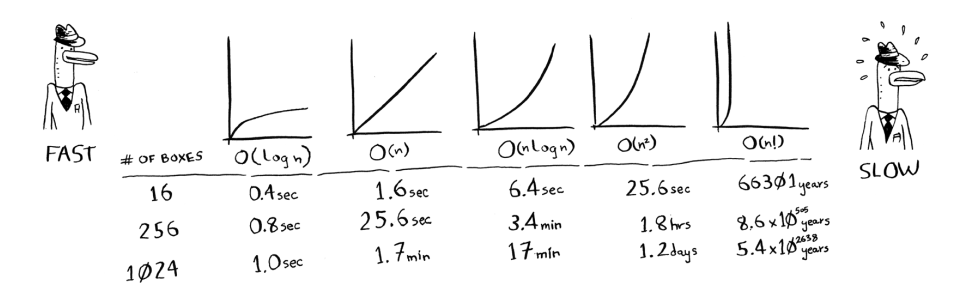 FAST
SLOW
# OF BOXES O(log n) O(n) O(n log n) O(n²) O(n!)
16 0.4 sec 1.6 sec 6.4 sec 25.6 sec 66301 years
256 0.8 sec 25.6 sec 3.4 min 1.8 hrs 8.6 x 10⁵⁰⁵ years
1024 1.0 sec 1.7 min 17 min 1.2 days 5.4 x 10²⁶³⁸ years